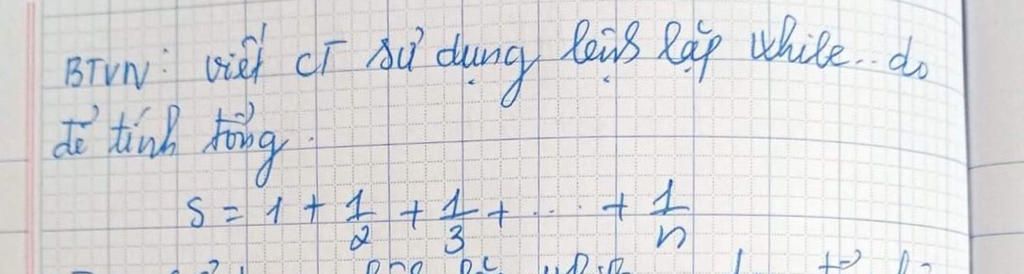 BTVN: viết CT sử dụng lệnh lặp While.. do
để tính tổng.
S = 1 + 1/2 + 1/3 + ... + 1/n